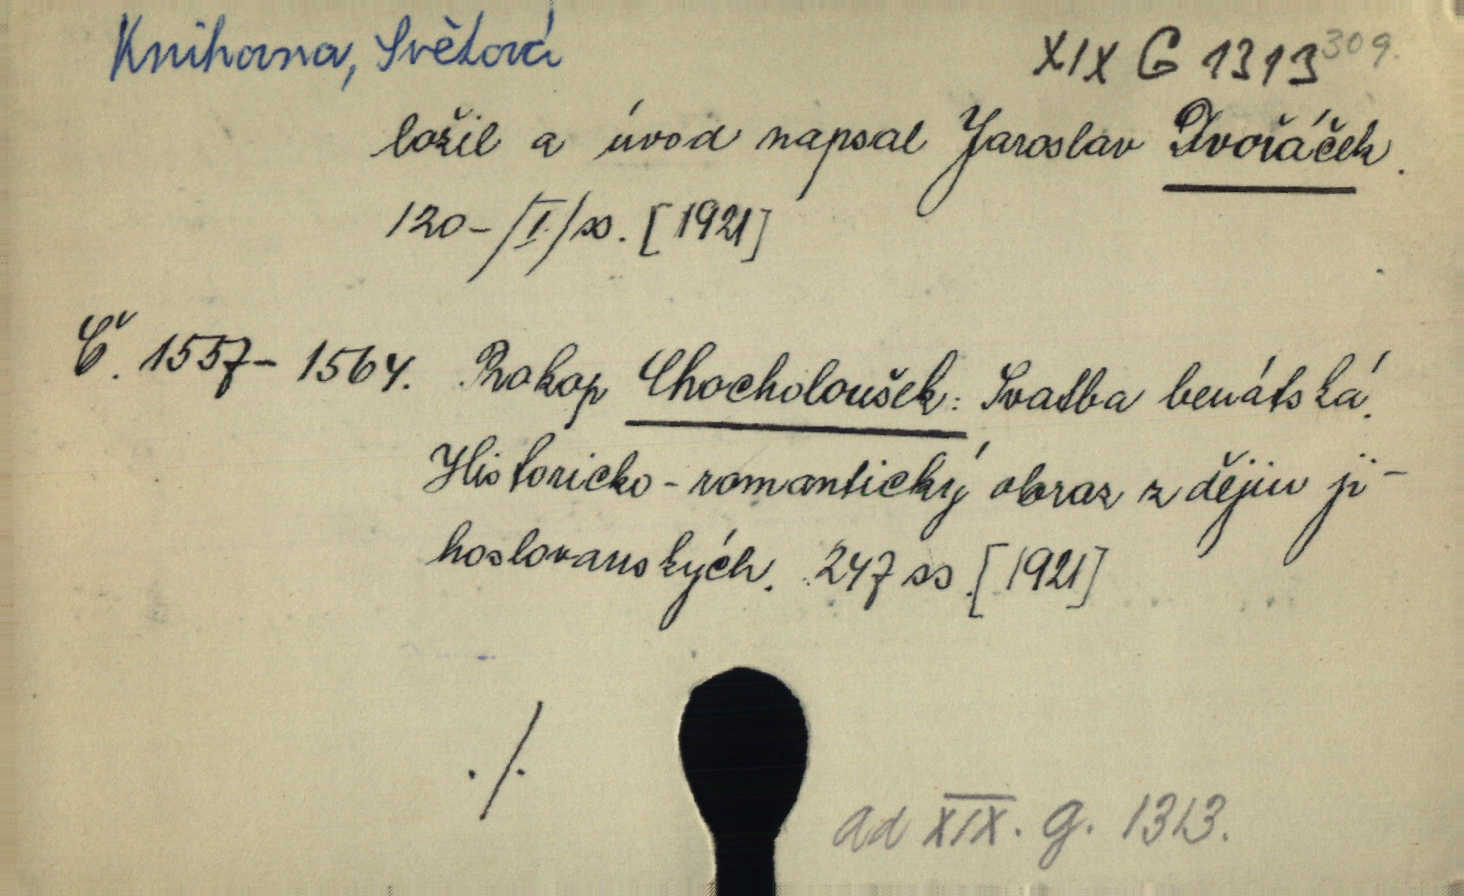 Knihovna, Světová
XIX G 1313 309.
ložil a úvod napsal Jaroslav Dvořáček.
120-/I/ss. [1921]
Č. 1557-1564. Prokop Chocholoušek: Svatba benátská.
Historicko-romantický obraz z dějin ji-
hoslovanských. 247 ss. [1921]
./.
ad XIX. g. 1313.